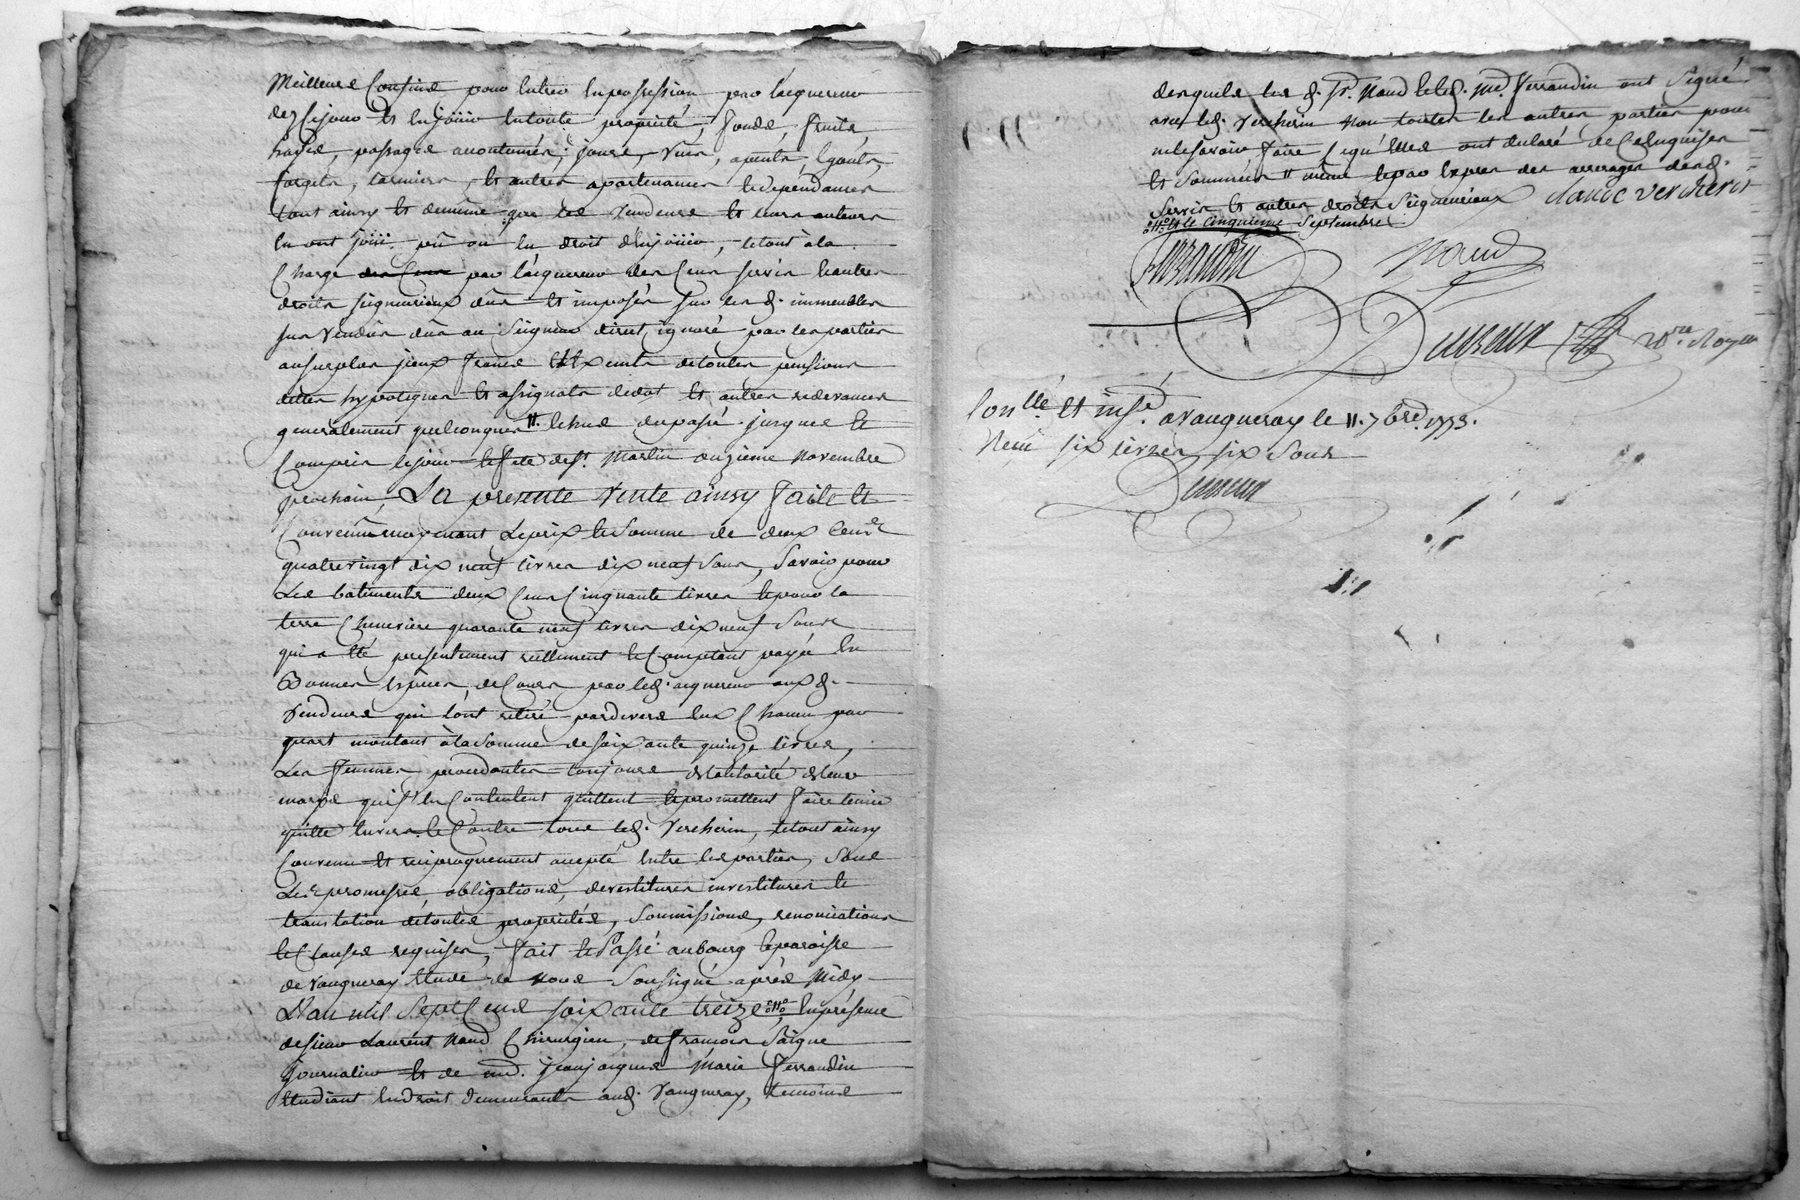 Meilleurs Confins pour entrer en possession par lacquereur
dez Cejour et en joüir en toute propriété, fonds, fruits
hayes, passages acoutumés, jours, vües, apents, Egouts,
largets, termins, et autres apartenances et dépendances
tout ainsy et demême que les vendeurs et leurs auteurs
en ont joüi. pû ou eu droit d'en joüir, Le tout à la
Charge par l'acquereur des Cens servis et autres
droits seigneuriaux dûs et imposés sur les d. immeubles
sus vendus dûs au Seigneur direct, ignoré par les parties
ausurplus iceux francs et Exempts de toutes pensions
dettes hypoteques et assignats de dot et autres redevances
generalement quelconques ". Et ce du passé jusques et
Compris le jour et fete de St. Martin onzieme Novembre
prochain, La presente Vente ainsy faite et
Convenüe moyenant Le prix et Somme de deux Cent
quatrevingt dix neuf Livres dix neuf Sous, Savoir pour
Les batiments deux Cens Cinquante Livres et pour la
terre Cheneviere quarante neuf Livres dix neuf Sous
qui a eté presentement réellement et Comptant payé en
Bonnes Espèces de Cours par led. aquereur aux d.
Vendeurs qui l'ont retiré pardevers Eux Chacun par
quart montant à la Somme de soixante quinze Livres,
Les femmes procedantes toujours de l'autorité de leurs
marys qui s'en Contentent quittent et promettent faire tenir
quitte Envers et Contre tous led. Vercherin, Le tout ainsy
Convenu et reciproquement accepté Entre les parties, Sous
Les promesses, obligations, devestitures investitures et
translation de toutes propriétés, Soumissions, renonciations
et Clauses requises, fait et Passé au bourg et paroisse
de Vaugneray Etude de Nous Soussigné après Midy
L'an mil Sept Cens soixante treize En présence
de Sieur Laurent Naud Chirurgien, de francois Saigne
journalier et de md. jean jacques Marie ferrandin
Etudiant En droit demeurants aud. Vaugneray, temoins
desquels les d. Sr. Naud et led. md. ferrandin ont Signé
avec led. Vercherin Non toutes les autres parties pour
ne le Savoir faire qu'Elles ont declaré de Ce Enquises
et Sommées " même et par Exprès des arrerages desd.
Servis et autres droits Seigneuriaux Claude Vercherin
et le Cinquieme Septembre
ferrandin Naud
Nore. Royal
Conllé. et insé. a Vaugneray le 11. 7bre. 1773.
Reçu six Livres six Sous